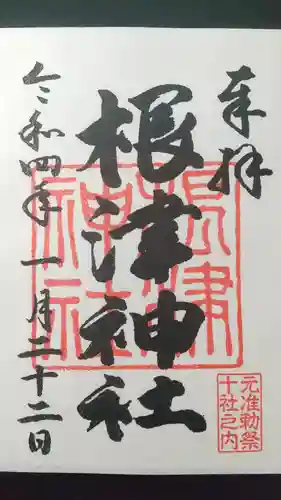 奉拝
根津神社
令和四年一月二十二日
根津
神社
元准勅祭
十社之内